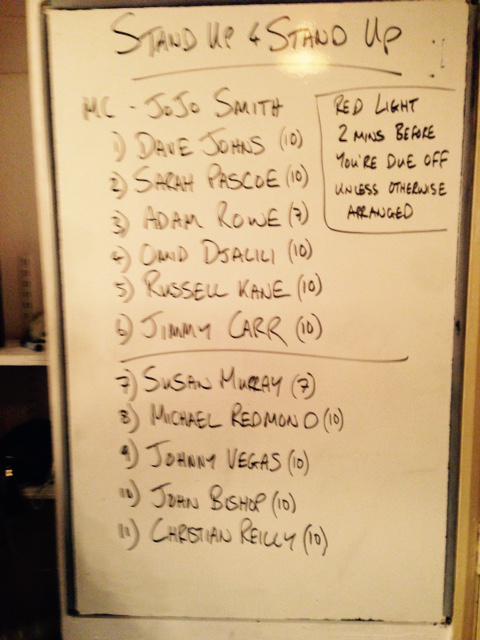 STAND UP & STAND UP
MC - JOJO SMITH
1) DAVE JOHNS (10)
2) SARAH PASCOE (10)
3) ADAM ROWE (7)
4) OMID DJALILI (10)
5) RUSSELL KANE (10)
6) JIMMY CARR (10)
7) SUSAN MURRAY (7)
8) MICHAEL REDMOND (10)
9) JOHNNY VEGAS (10)
10) JOHN BISHOP (10)
11) CHRISTIAN REILLY (10)
RED LIGHT
2 MINS BEFORE
YOU'RE DUE OFF
UNLESS OTHERWISE
ARRANGED